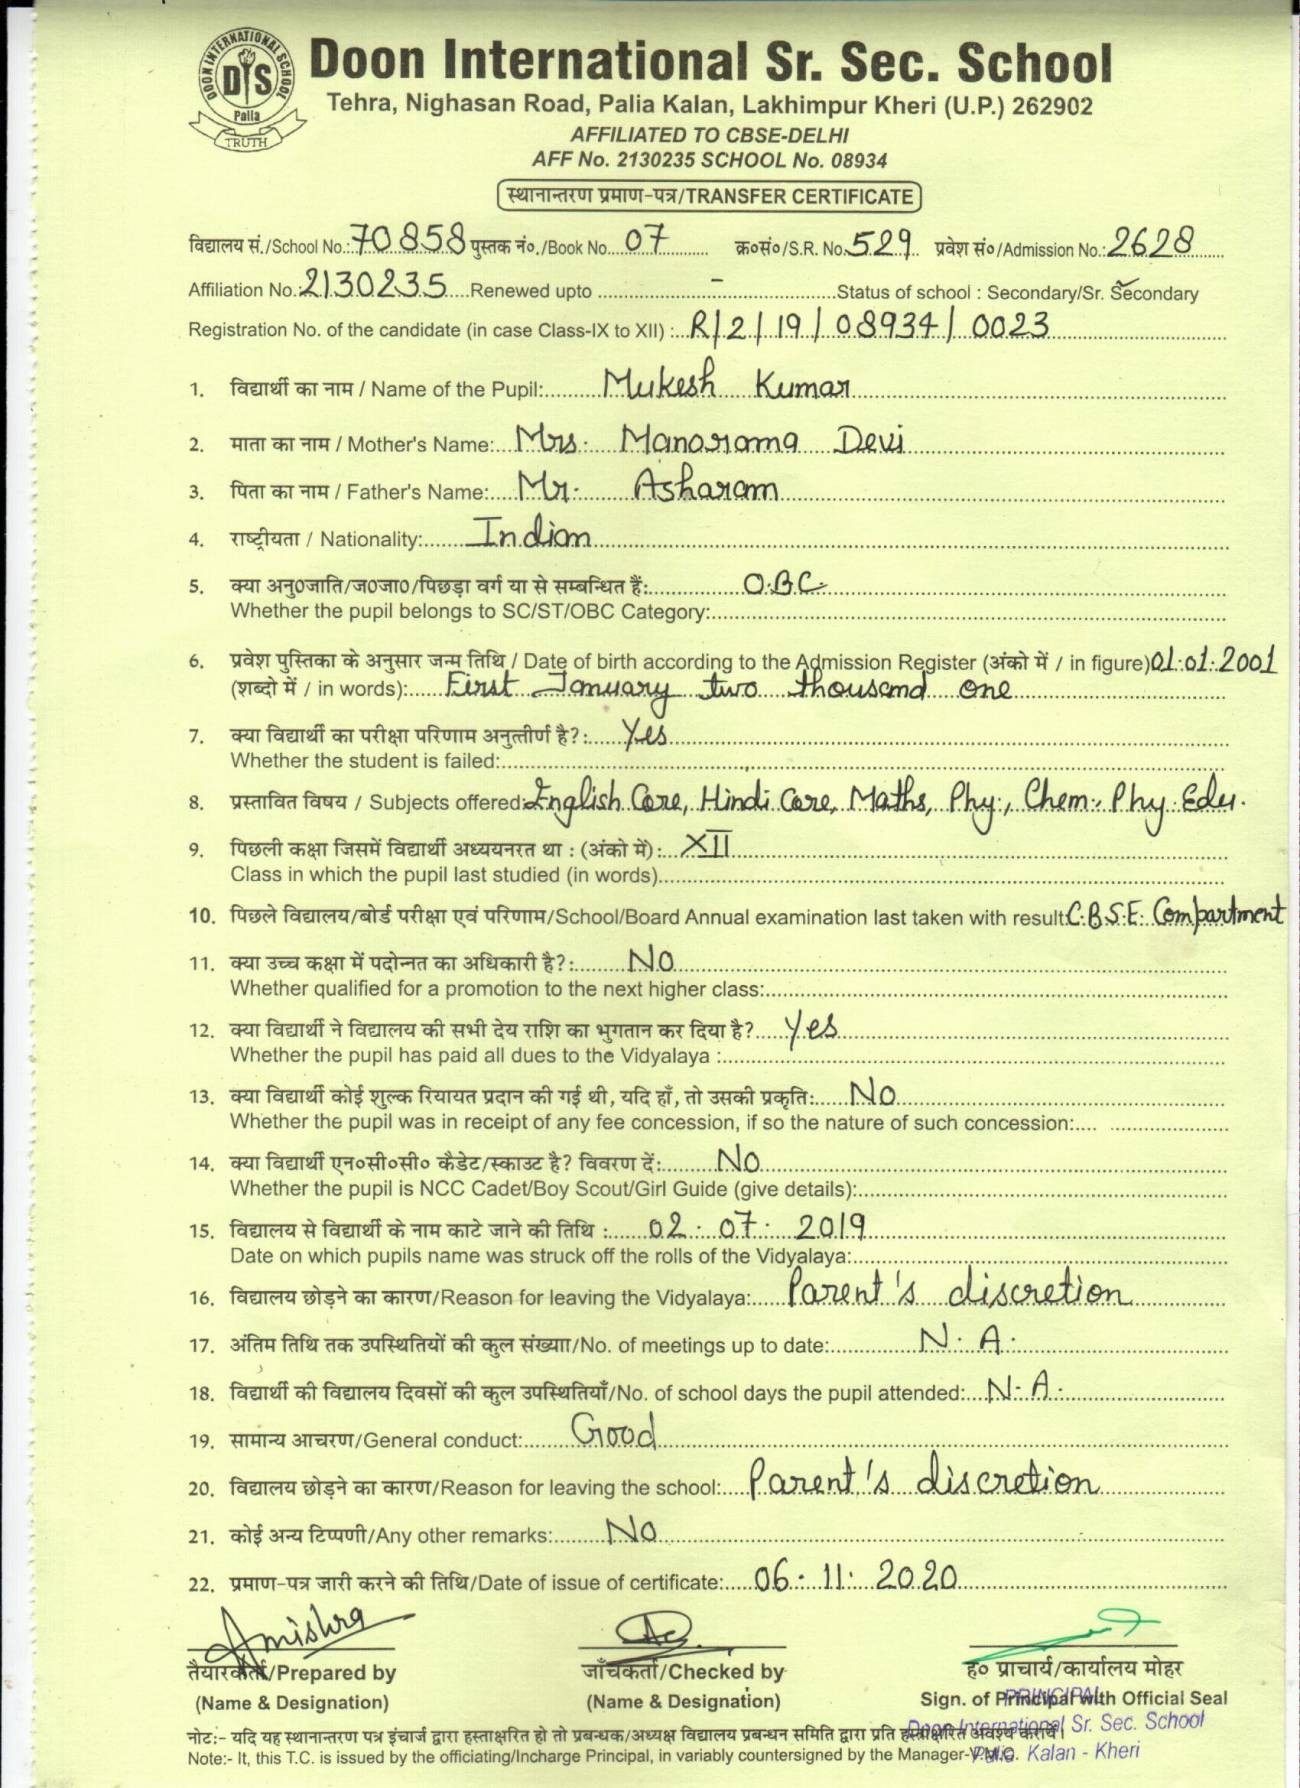 DOON INTERNATIONAL SCHOOL
DIS
Palia
TRUTH
Doon International Sr. Sec. School
Tehra, Nighasan Road, Palia Kalan, Lakhimpur Kheri (U.P.) 262902
AFFILIATED TO CBSE-DELHI
AFF No. 2130235 SCHOOL No. 08934
स्थानान्तरण प्रमाण-पत्र/TRANSFER CERTIFICATE
विद्यालय सं./School No.: 70858 पुस्तक नं०./Book No. 07 क्र०सं०/S.R. No. 529 प्रवेश सं०/Admission No.: 2628
Affiliation No. 2130235 Renewed upto - Status of school : Secondary/Sr. Secondary
Registration No. of the candidate (in case Class-IX to XII) : R/2/19/08934/0023
1. विद्यार्थी का नाम / Name of the Pupil: Mukesh Kumar
2. माता का नाम / Mother's Name: Mrs. Manorama Devi
3. पिता का नाम / Father's Name: Mr. Asharam
4. राष्ट्रीयता / Nationality: Indian
5. क्या अनु0जाति/ज0जा0/पिछड़ा वर्ग या से सम्बन्धित हैं: O.B.C.
Whether the pupil belongs to SC/ST/OBC Category:
6. प्रवेश पुस्तिका के अनुसार जन्म तिथि / Date of birth according to the Admission Register (अंको में / in figure) 01.01.2001
(शब्दो में / in words): First January two thousand one
7. क्या विद्यार्थी का परीक्षा परिणाम अनुत्तीर्ण है?: Yes
Whether the student is failed:
8. प्रस्तावित विषय / Subjects offered: English Core, Hindi Core, Maths, Phy., Chem., Phy. Edu.
9. पिछली कक्षा जिसमें विद्यार्थी अध्ययनरत था : (अंको में): XII
Class in which the pupil last studied (in words)
10. पिछले विद्यालय/बोर्ड परीक्षा एवं परिणाम/School/Board Annual examination last taken with result: C.B.S.E. Compartment
11. क्या उच्च कक्षा में पदोन्नत का अधिकारी है?: NO
Whether qualified for a promotion to the next higher class:
12. क्या विद्यार्थी ने विद्यालय की सभी देय राशि का भुगतान कर दिया है? Yes
Whether the pupil has paid all dues to the Vidyalaya :
13. क्या विद्यार्थी कोई शुल्क रियायत प्रदान की गई थी, यदि हाँ, तो उसकी प्रकृति: No
Whether the pupil was in receipt of any fee concession, if so the nature of such concession:
14. क्या विद्यार्थी एन०सी०सी० कैडेट/स्काउट है? विवरण दें: No
Whether the pupil is NCC Cadet/Boy Scout/Girl Guide (give details):
15. विद्यालय से विद्यार्थी के नाम काटे जाने की तिथि : 02.07.2019
Date on which pupils name was struck off the rolls of the Vidyalaya:
16. विद्यालय छोड़ने का कारण/Reason for leaving the Vidyalaya: Parent's discretion
17. अंतिम तिथि तक उपस्थितियों की कुल संख्या/No. of meetings up to date: N.A.
18. विद्यार्थी की विद्यालय दिवसों की कुल उपस्थितियाँ/No. of school days the pupil attended: N.A.
19. सामान्य आचरण/General conduct: Good
20. विद्यालय छोड़ने का कारण/Reason for leaving the school: Parent's discretion
21. कोई अन्य टिप्पणी/Any other remarks: No
22. प्रमाण-पत्र जारी करने की तिथि/Date of issue of certificate: 06.11.2020
तैयारकर्ता/Prepared by जाँचकर्ता/Checked by ह० प्राचार्य/कार्यालय मोहर
(Name & Designation) (Name & Designation) Sign. of Principal with Official Seal
PRINCIPAL
Doon International Sr. Sec. School
Palia Kalan - Kheri
नोट:- यदि यह स्थानान्तरण पत्र इंचार्ज द्वारा हस्ताक्षरित हो तो प्रबन्धक/अध्यक्ष विद्यालय प्रबन्धन समिति द्वारा प्रति हस्ताक्षरित अवश्य करायें।
Note:- It, this T.C. is issued by the officiating/Incharge Principal, in variably countersigned by the Manager-V.M.C.